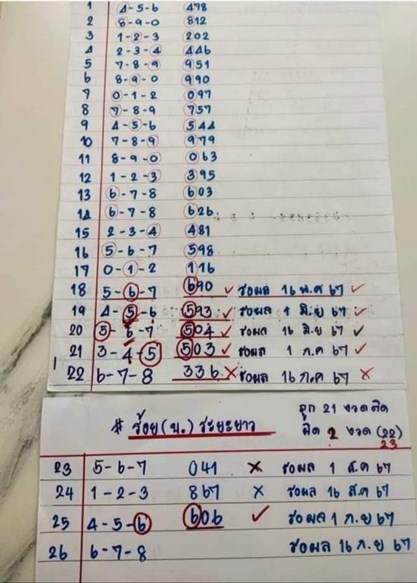 1 4-5-6 478
2 8-9-0 812
3 1-2-3 202
4 2-3-4 446
5 7-8-9 951
6 8-9-0 990
7 0-1-2 097
8 7-8-9 757
9 4-5-6 544
10 7-8-9 979
11 8-9-0 063
12 1-2-3 395
13 6-7-8 603
14 6-7-8 626
15 2-3-4 481
16 5-6-7 598
17 0-1-2 116
18 5-6-7 690 ✓ รอผล 16 พ.ค 67 ✓
19 4-5-6 593 ✓ รอผล 1 มิ.ย 67 ✓
20 5-6-7 504 ✓ รอผล 16 มิ.ย 67 ✓
21 3-4-5 503 ✓ รอผล 1 ก.ค 67 ✓
22 6-7-8 336 X รอผล 16 ก.ค 67 X
# ร้อย (น.) ระยะยาว
ถูก 21 งวดติด
ผิด 2 งวด (22)
23
23 5-6-7 041 X รอผล 1 ส.ค 67
24 1-2-3 867 X รอผล 16 ส.ค 67
25 4-5-6 606 ✓ รอผล 1 ก.ย 67
26 6-7-8 รอผล 16 ก.ย 67